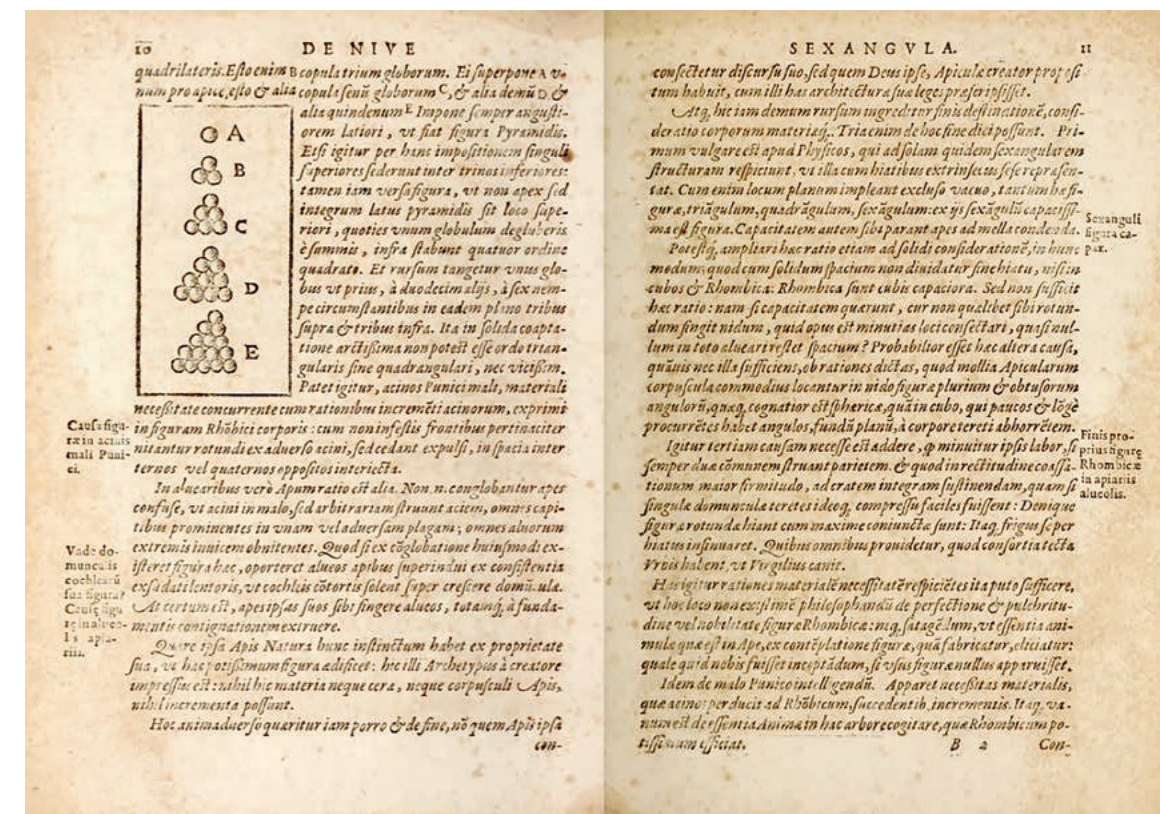 10
DE NIVE
quadrilateris. Esto enim B copula trium globorum. Ei superpone A v-
num pro apice, esto & alia copula senũ globorum C, & alia denũ D, &
alia quindenum E Impone semper angusti-
orem latiori, vt fiat figura Pyramidis.
Etsi igitur per hanc impositionem singuli
superiores sederunt inter trinos inferiores:
tamen iam versa figura, vt non apex sed
integrum latus pyramidis sit loco supe-
riori, quoties vnum globulum degluberis
è summis, infra stabunt quatuor ordine
quadrato. Et rursum tangetur vnus glo-
bus vt prius, à duodecim alijs, à sex nem-
pe circumstantibus in eodem plano tribus
supra & tribus infra. Ita in solida coapta-
tione arctißima non potest esse ordo trian-
gularis sine quadrangulari, nec vicißim.
Patet igitur, acinos Punici mali, materiali
A
B
C
D
E
neceßitate concurrente cum rationibus incremẽti acinorum, exprimi
in figuram Rhõbici corporis: cum non infestis frontibus pertinaciter
nitantur rotundi ex aduerso acini, sed cedant expulsi, in spacia inter
ternos vel quaternos oppositos interiecta.
Causa figu-
ræ in acinis
mali Puni-
ci.
In aluearibus verò Apum ratio est alia. Non.n. conglobantur apes
confuse, vt acini in malo, sed arbitrariam struunt aciem, omnes capi-
tibus prominentes in vnam vel aduersam plagam; omnes aluorum
extremis inuicem obnitentes. Quod si ex cõglobatione huiusmodi ex-
isteret figura hæc, oporteret alueos apibus superindui ex consistentia
exsudati lentoris, vt cochleis cõtortis solent super crescere domũculæ.
At certum est, apes ipsas suos sibi fingere alueos, totamq; à funda-
mentis contignationem extruere.
Vnde do-
muncu is
cochlearũ
sua figura?
Causę figu
ræ in alueo-
l s apia-
riis.
Quare ipsa Apis Natura hunc instinctum habet ex proprietate
sua, vt hac potißimum figura ædificet: hic illi Archetypus à creatore
impressus est: nihil hic materia neque cera, neque corpusculi Apis,
nihil incrementa possunt.
Hoc animaduerso quæritur iam porro & de fine, nõ quem Apis ipsa
con-
SEXANGVLA.
11
consectetur discursu suo, sed quem Deus ipse, Apiculæ creator proposi
tum habuit, cum illi has architecturæ suæ leges præscripsisset.
Atq, hic iam demum rursum ingreditur finis destinationẽ, consi-
deratio corporum materiæq;. Tria enim de hoc fine dici possunt. Pri-
mum vulgare est apud Physicos, qui ad solam quidem sexangularem
structuram respiciunt, vt illa cum hiatibus extrinsecus sese repræsen-
tat. Cum enim locum planum impleant excluso vacuo, tantum hæ fi-
guræ, triãgulum, quadrãgulum, sexãgulum: ex ijs sexãgulũ capacissi-
ma est figura. Capacitatem autem sibi parant apes ad mella condenda.
Sexanguli
figura ca-
pax.
Potestq, ampliari hæc ratio etiam ad solidi considerationẽ, in hunc
modum; quod cum solidum spacium non diuidatur sine hiatu, nisi in
cubos & Rhombica: Rhombica sunt cubis capaciora. Sed non sufficit
hæc ratio: nam si capacitatem quærunt, cur non quælibet sibi rotun-
dum fingit nidum, quid opus est minutias loci consectari, quasi nul-
lum in toto alueari restet spacium? Probabilior esset hæc altera causa,
quãuis nec illa sufficiens, ob rationes dictas, quod mollia Apicularum
corpuscula commodius locantur in nido figuræ plurium & obtusorum
angulorũ, quæq, cognatior est sphæricæ, quã in cubo, qui paucos & lõgè
procurrẽtes habet angulos, fundũ planũ, à corpore tereti abhorrẽtem.
Igitur tertiam causam necesse est addere, q minuitur ipsis labor, si
semper duæ cõmunem struant parietem. & quod in rectitudine coaßa-
tionum maior firmitudo, ad cratem integram sustinendam, quam si
singulæ domunculæ teretes ideoq, compressu faciles fuissent: Denique
figuræ rotundæ hiant cum maxime coniunctæ sunt: Itaq, frigus se per
hiatus insinuaret. Quibus omnibus prouidetur, quod consortia tecta
Vrbis habent, vt Virgilius canit.
Finis pro-
prius figurę
Rhombicæ
in apiariis
alueolis.
Has igitur rationes materialẽ necessitatẽ respiciẽtes ita puto sufficere,
vt hoc loco non existimẽ philosophandũ de perfectione & pulchritu-
dine vel nobilitate figuræ Rhombicæ: neq, satagẽdum, vt essentia ani-
mulæ quæ est in Ape, ex contẽplatione figuræ, quã fabricatur, eliciatur:
quale quid nobis fuisset inceptãdum, si vsus figuræ nullus apparuisset.
Idem de malo Punico intelligendũ. Apparet necessitas materialis,
quæ acinos perducit ad Rhõbicum, succedentib. incrementis. Itaq, va-
num est de essentia Animæ in hac arbore cogitare, quæ Rhombicum po-
tissimum efficiat.
B 2
Con-